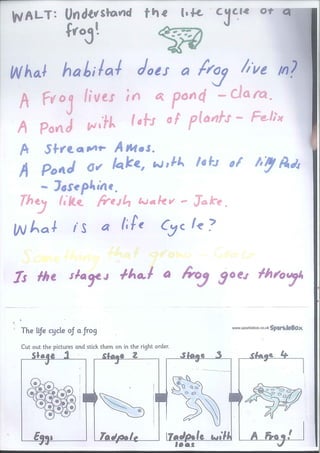 WALT: Understand the life cycle of a
frog!
What habitat does a frog live in?
A Frog lives in a pond - Clara.
A Pond with lots of plants - Felix
A Stream - Amos.
A Pond or lake, with lots of lily Pads
- Josephine.
They like fresh water - Jake.
What is a life cycle?
Something that grows -
Is the stages that a frog goes through
The life cycle of a frog
www.sparklebox.co.uk SparkleBox
Cut out the pictures and stick them on in the right order.
Stage 1 Stage 2 Stage 3 Stage 4
Eggs Tadpole Tadpole with A Frog!
legs